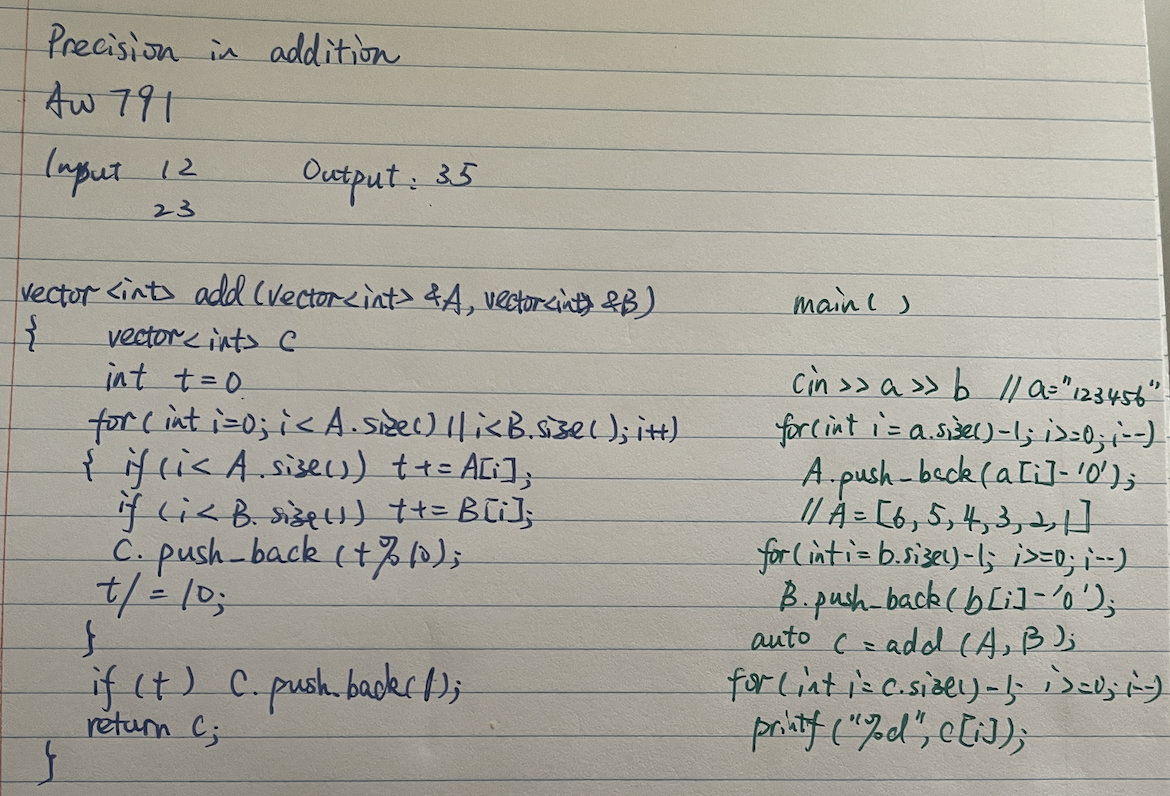 Precision in addition
AW 791
Input 12 Output: 35
23
vector<int> add(vector<int> &A, vector<int> &B)
{ vector<int> C
int t=0
for(int i=0; i<A.size() || i<B.size(); i++)
{ if (i<A.size()) t+=A[i];
if (i<B.size()) t+=B[i];
C.push_back(t%10);
t/=10;
}
if (t) C.push_back(1);
return C;
}
main()
Cin>>a>>b //a="123456"
for(int i=a.size()-1; i>=0; i--)
A.push_back(a[i]-'0');
//A=[6,5,4,3,2,1]
for(int i=b.size()-1; i>=0; i--)
B.push_back(b[i]-'0');
auto c = add (A, B);
for(int i=c.size()-1; i>=0; i--)
printf("%d", c[i]);